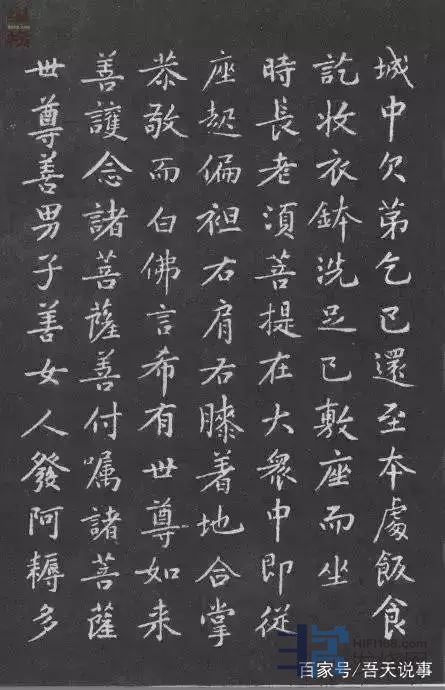 城中次第乞已還至本處飯食
訖收衣鉢洗足已敷座而坐
時長老湏菩提在大衆中即從
座起偏袒右肩右膝着地合掌
恭敬而白佛言希有世尊如来
善護念諸菩薩善付嘱諸菩薩
世尊善男子善女人發阿耨多
百家号/吾天说事